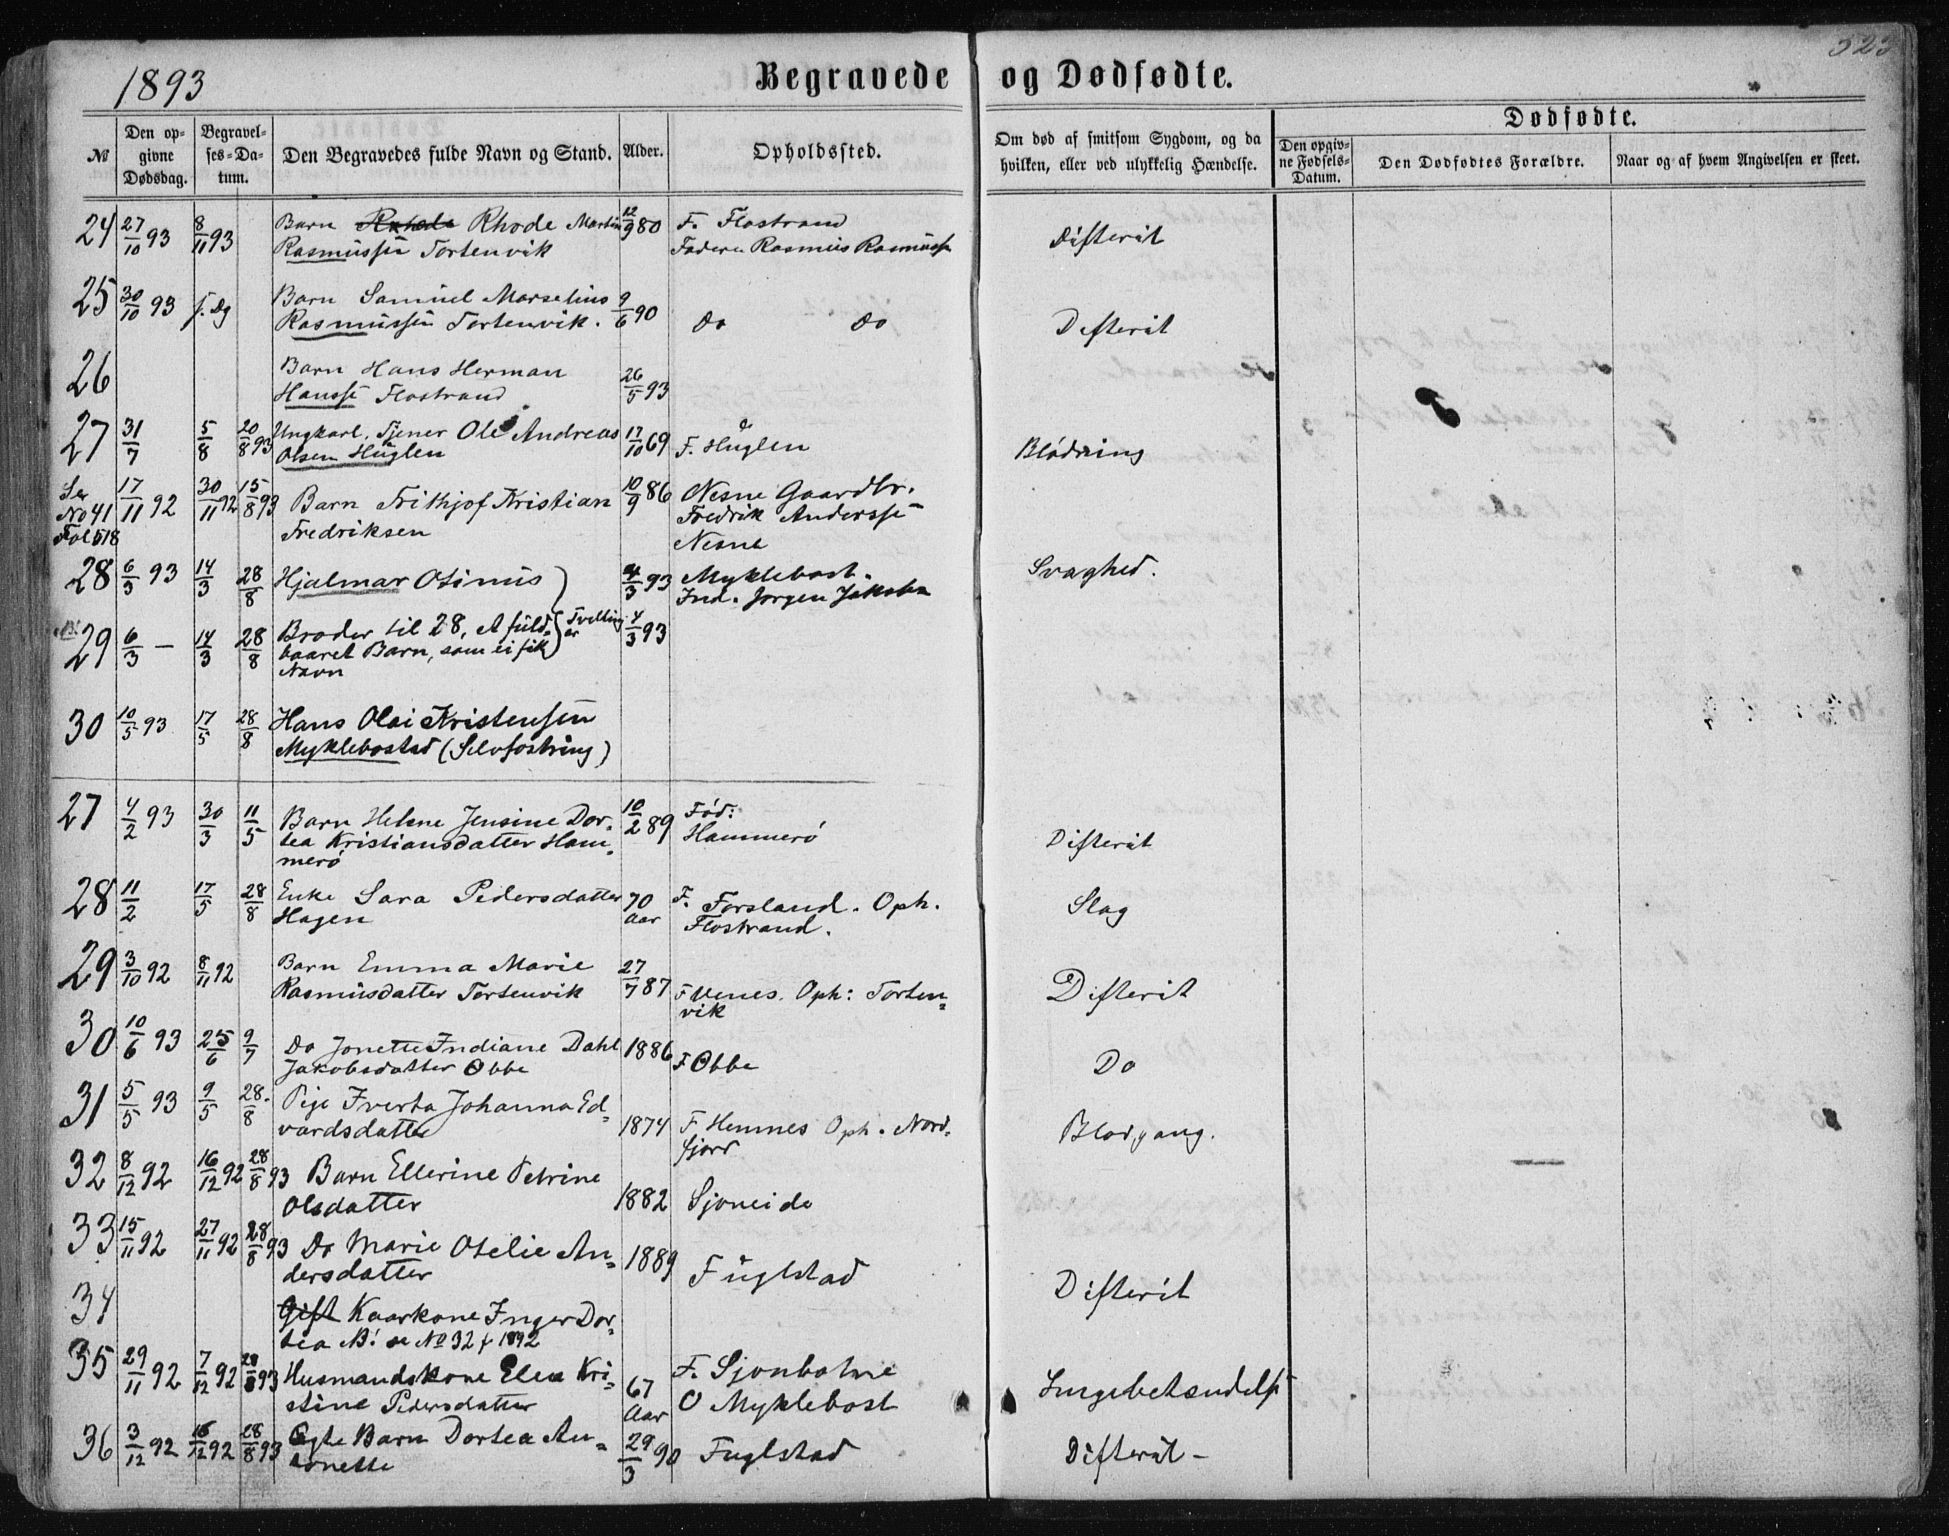 523
1893
Begravede og Dødfødte.
№
Den opgivne Dødsdag.
Begravelses-Datum.
Den Begravedes fulde Navn og Stand.
Alder.
Opholdssted.
Om død af smitsom Sygdom, og da hvilken, eller ved ulykkelig Hændelse.
Dødfødte.
Den opgivne Fødsels-Datum.
Den Dødfødtes Forældre.
Naar og af hvem Angivelsen er skeet.
24 27/10 93 8/11 93 Barn Rhode Martin 12/9 80 F. Flostrand Difterit
Rasmussen Tortenvik Faderen Rasmus Rasmussen
25 30/10 93 s. Dg Barn Samuel Marselius 9/6 90 do do Difterit
Rasmussen Tortenvik.
26 Barn Hans Herman 26/5 93
Hansse Flostrand
27 31/7 5/8 20/8 93 Ungkarl, Tjener Ole Andreas 17/10 69 F. Huglen Blödning
Olsen Huglen
Se No 41 Fol 518 17/11 92 30/11 92 15/8 93 Barn Frithjof Kristian 10/9 86 Nesne Gaardbr.
Fredriksen Fredrik Anderssen
Nesne
28 6/3 93 14/3 28/8 Hjalmar Otinus 4/3 93 Myklebost. Svaghed.
Ind. Jørgen Jakobsen
29 6/3 — 14/3 28/8 Broder til 28, et fuld- Tvillinger 4/3 93
baaret Barn, som ei fik
Navn
30 10/5 93 17/5 28/8 Hans Olai Kristensen
Myklebostad (Selvfostring)
27 4/2 93 30/3 11/5 Barn Helene Jensine Dor- 10/2 89 Fød: Difterit
tea Kristiansdatter Ham- Hammerö
merö
28 11/2 17/5 28/8 Enke Sara Pedersdatter 70 Aar F. Forsland. Oph. Slag
Hagen Flostrand.
29 3/10 92 8/11 92 Barn Emma Marie 27/7 87 Difterit
Rasmusdatter Tortenvik F Venes. Oph: Torten-
vik
30 10/6 93 25/6 9/7 Do Jonette Indiane Dahl 1886 F Obbe Do
Jakobsdatter Obbe
31 5/5 93 9/5 28/8 Pige Iverta Johanna Ed- 1874 F Hemnes Oph. Nord- Blodgang.
vardsdatter fjord
32 8/12 92 16/12 92 28/8 93 Barn Ellerine Petrine —
Olsdatter 1882 Sjoneide
33 15/11 92 27/11 92 28/8 93 Do Marie Otelie An- 1889 Fuglstad Difterit
dersdatter
34 Gift Kaarkone Inger Dor-
tea NB! se No 32 f 1892
35 29/11 92 7/12 92 28/8 93 Husmandskone Elen Kri- 67 Aar F. Sjonbotne Lungebetændelse
stine Pedersdatter O Myklebost
36 3/12 92 16/12 92 28/8 93 Egte Barn Dortea An- 29/3 90 Fuglstad Difterit -
tonette